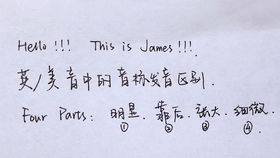 Hello!!! This is James!!!.
英/美音中的音标发音区别.
Four Parts: 明显. 靠后. 张大. 细微.
① ② ③ ④.